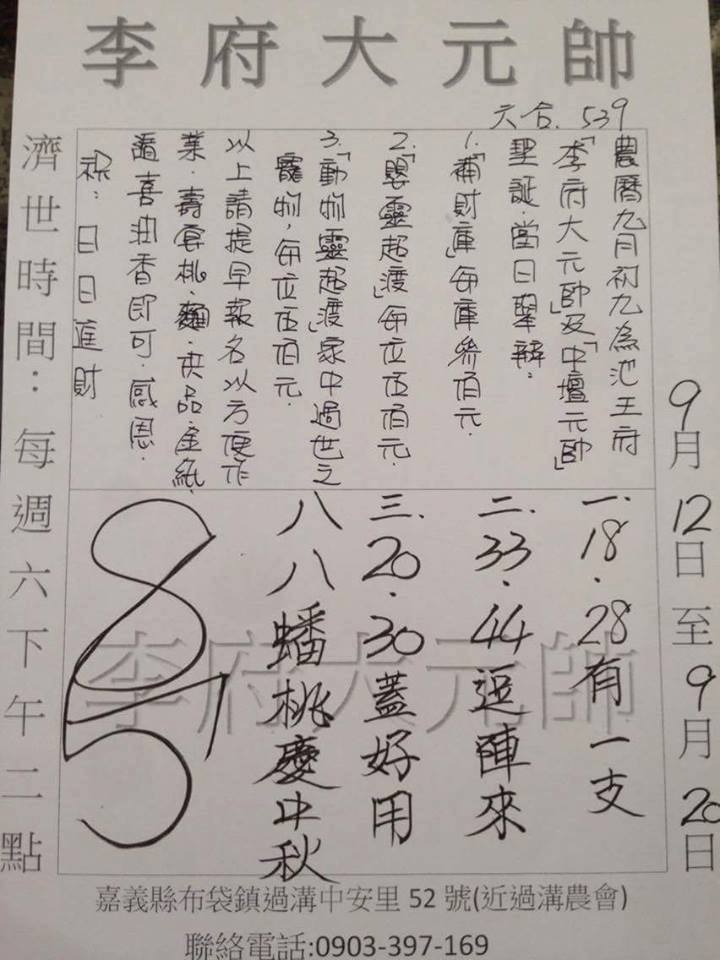 李府大元帥
六合.539
9月12日至9月20日
農曆九月初九為池王府
「李府大元帥」及「中壇元帥」
聖誕.當日舉辦:
1.「補財庫」每庫參佰元.
2.「嬰靈超渡」每位伍佰元.
3.「動物靈超渡」家中過世之
寵物,每位伍佰元.
以上請提早報名以方便作
業.壽桃.麵.供品.金紙.
隨喜油香即可.感恩.
祝:日日進財
一.18.28有一支
二.33.44逗陣來
三.20.30蓋好用
八八蟠桃慶中秋
李府大元帥
濟世時間:每週六下午二點
嘉義縣布袋鎮過溝中安里 52 號(近過溝農會)
聯絡電話:0903-397-169